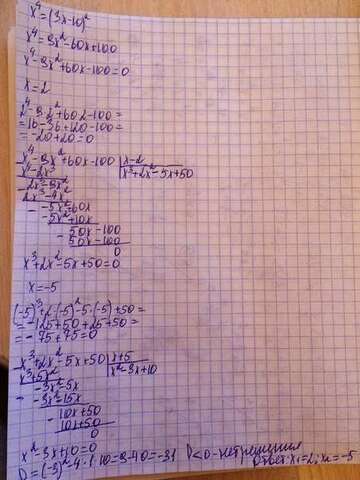 x⁴=(3x-10)²
x⁴=9x²-60x+100
x⁴-9x²+60x-100=0
x=2
2⁴-9·2²+60·2-100=
=16-36+120-100=
=-20+20=0
x⁴-9x²+60x-100 | x-2
x⁴-2x³ | x³+2x²-5x+50
2x³-9x²
2x³-4x²
-5x²+60x
-5x²+10x
50x-100
50x-100
0
x³+2x²-5x+50=0
x=-5
(-5)³+2·(-5)²-5·(-5)+50=
=-125+50+25+50=
=-75+75=0
x³+2x²-5x+50 | x+5
x³+5x² | x²-3x+10
-3x²-5x
-3x²-15x
10x+50
10x+50
0
x²-3x+10=0
D=(-3)²-4·1·10=9-40=-31 D<0-нет решения
Ответ: x₁=2; x₂=-5